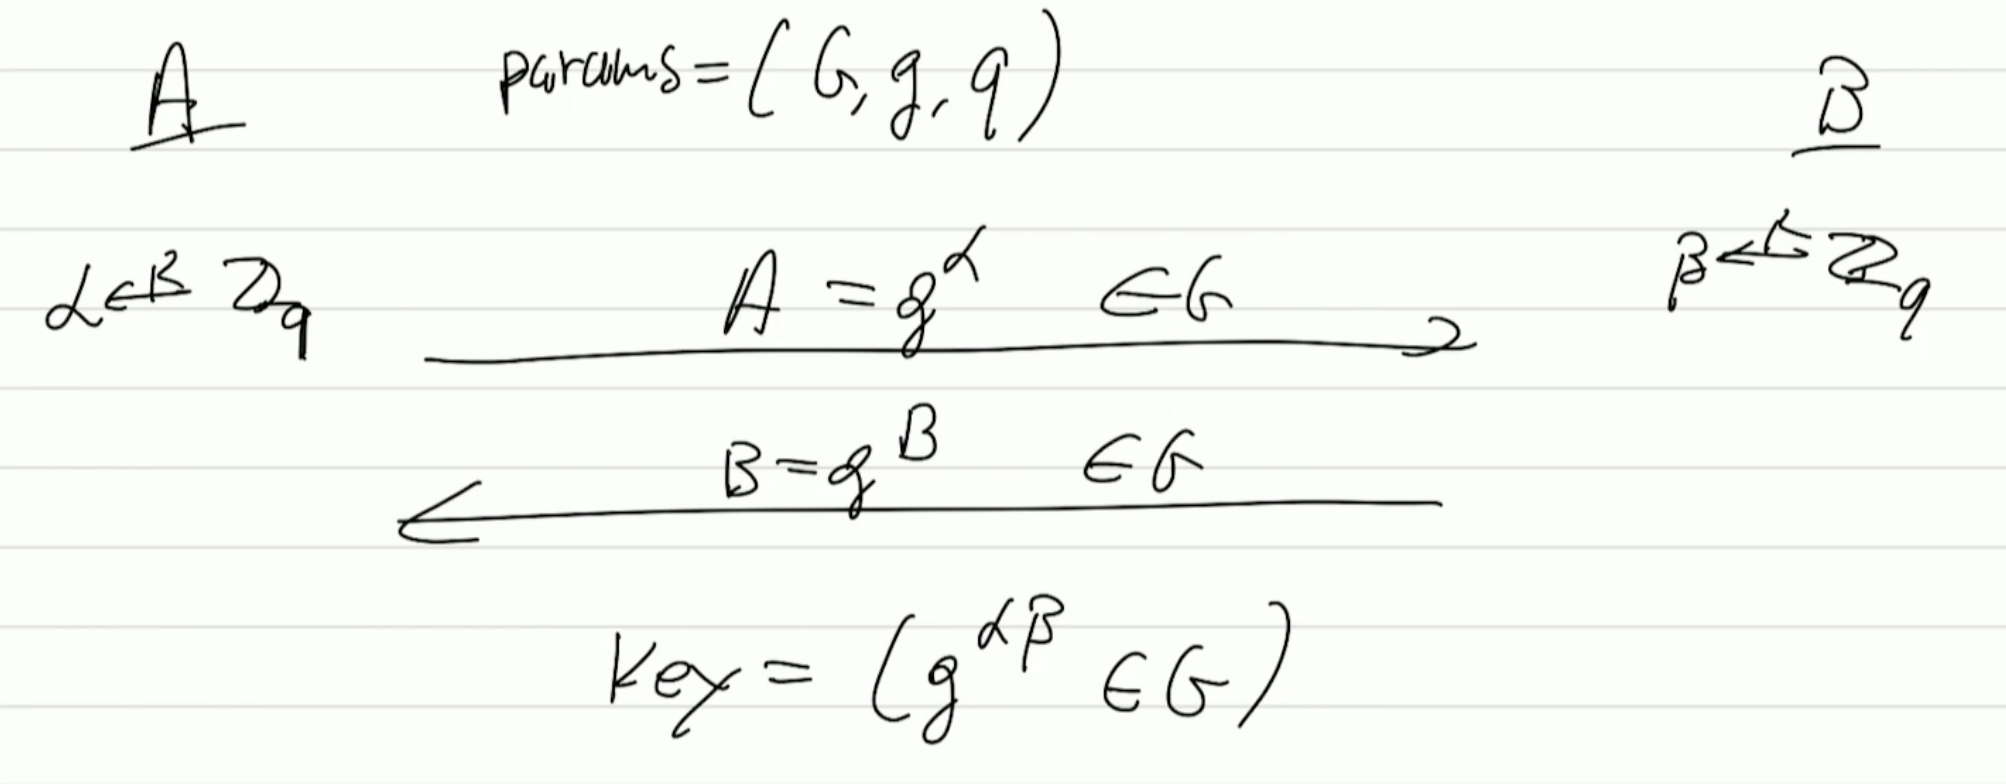 A params = (G, g, q) B
α ←R Z_q A = g^α ∈ G β ←R Z_q
B = g^β ∈ G
Key = (g^αβ ∈ G)